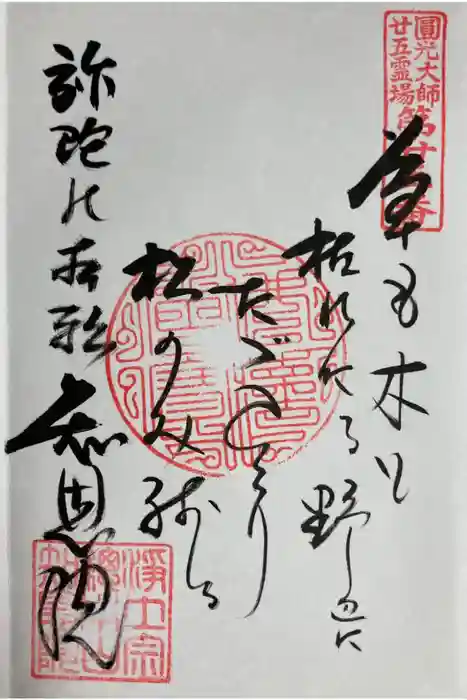 圓光大師
廿五霊場
第廿五番
草も木も
枯れたる野辺に
たゞひとり
松のみ残る
弥陀の本願 知恩院
淨土宗
總本山
知恩院